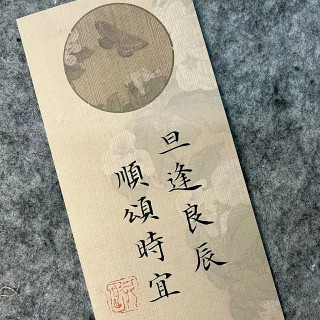 旦逢良辰
順頌時宜